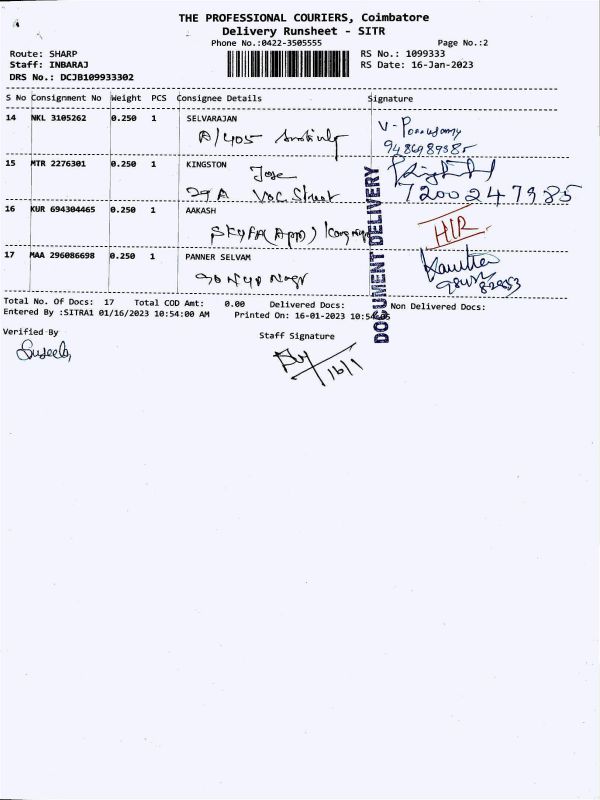 THE PROFESSIONAL COURIERS, Coimbatore
Delivery Runsheet - SITR
Phone No.:0422-3505555 Page No.:2
Route: SHARP RS No.: 1099333
Staff: INBARAJ RS Date: 16-Jan-2023
DRS No.: DCJB109933302
S No Consignment No Weight PCS Consignee Details Signature
14 NKL 3105262 0.250 1 SELVARAJAN
A/405
15 MTR 2276301 0.250 1 KINGSTON
Jose
29 A VOC Street 7200247985
16 KUR 694304465 0.250 1 AAKASH
SKYFA(App)
17 MAA 296086698 0.250 1 PANNER SELVAM
Total No. Of Docs: 17 Total COD Amt: 0.00 Delivered Docs: Non Delivered Docs:
Entered By :SITRA1 01/16/2023 10:54:00 AM Printed On: 16-01-2023 10:54
Verified By Staff Signature
Suseela
16/1
DOCUMENT DELIVERY